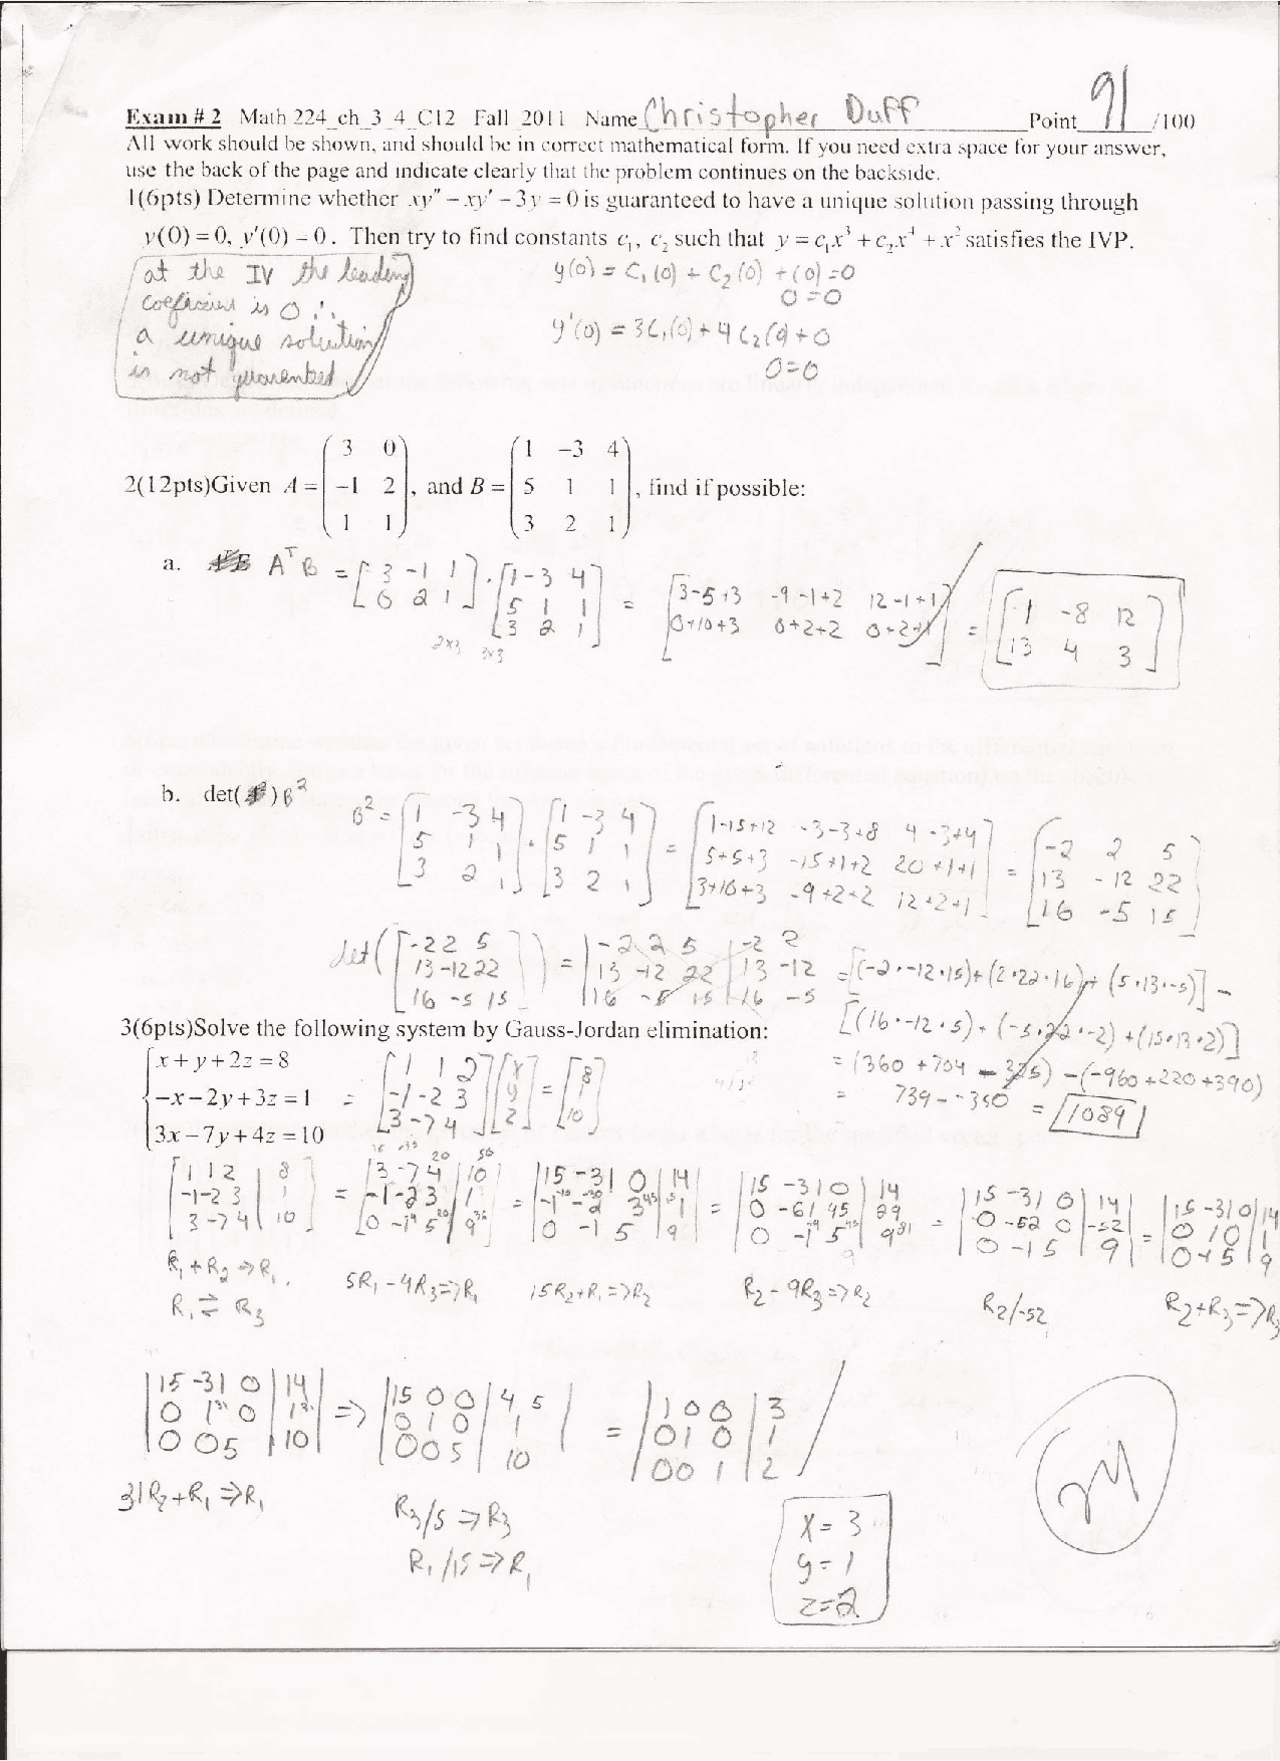 Exam # 2 Math 224_ch_3_4_C12 Fall_2011 Name Christopher Duff Point 91 /100
All work should be shown, and should be in correct mathematical form. If you need extra space for your answer,
use the back of the page and indicate clearly that the problem continues on the backside.
1(6pts) Determine whether xy″ − xy′ − 3y = 0 is guaranteed to have a unique solution passing through
y(0) = 0, y′(0) = 0. Then try to find constants c₁, c₂ such that y = c₁x³ + c₂x⁴ + x² satisfies the IVP.
at the IV the leading
coefficient is 0 ∴
a unique solution
is not guarenteed
y(0) = C₁(0) + C₂(0) + (0) = 0
0 = 0
y'(0) = 3C₁(0) + 4C₂(0) + 0
0 = 0
2(12pts)Given A = (3 0; −1 2; 1 1), and B = (1 −3 4; 5 1 1; 3 2 1), find if possible:
a. AᵀB = [3 -1 1; 0 2 1] · [1 -3 4; 5 1 1; 3 2 1] = [3-5+3 -9-1+2 12-1+1; 0+10+3 0+2+2 0+2+1] = [1 -8 12; 13 4 3]
2x3 3x3
b. det( )B²
B² = [1 -3 4; 5 1 1; 3 2 1] · [1 -3 4; 5 1 1; 3 2 1] = [1-15+12 -3-3+8 4-3+4; 5+5+3 -15+1+2 20+1+1; 3+10+3 -9+2+2 12+2+1] = [-2 2 5; 13 -12 22; 16 -5 15]
det([-2 2 5; 13 -12 22; 16 -5 15]) = |-2 2 5; 13 -12 22; 16 -5 15| -2 2; 13 -12; 16 -5 = [(-2·-12·15)+(2·22·16)+(5·13·-5)] -
[(16·-12·5)+(-5·22·-2)+(15·13·2)]
= (360 + 704 - 325) - (-960+220+390)
= 739 - -350 = 1089
3(6pts)Solve the following system by Gauss-Jordan elimination:
x + y + 2z = 8
−x − 2y + 3z = 1
3x − 7y + 4z = 10
= [1 1 2; -1 -2 3; 3 -7 4] [x; y; z] = [8; 1; 10]
[1 1 2 | 8; -1 -2 3 | 1; 3 -7 4 | 10] = [3 -7 4 | 10; -1 -2 3 | 1; 0 -1 5 | 9] = |15 -31 0 | 14; -1 -2 3 | 1; 0 -1 5 | 9| = |15 -31 0 | 14; 0 -61 45 | 29; 0 -1 5 | 9| = |15 -31 0 | 14; 0 -52 0 | -52; 0 -1 5 | 9| = |15 -31 0 | 14; 0 1 0 | 1; 0 -1 5 | 9
R₁ + R₂ ⇒ R₂
R₁ ⇌ R₃
5R₁ - 4R₃ ⇒ R₁
15R₂ + R₁ ⇒ R₂
R₂ - 9R₃ ⇒ R₂
R₂/-52
R₂+R₃ ⇒ R₃
|15 -31 0 | 14; 0 1 0 | 1; 0 0 5 | 10| ⇒ |15 0 0 | 45; 0 1 0 | 1; 0 0 5 | 10| = |1 0 0 | 3; 0 1 0 | 1; 0 0 1 | 2
31R₂ + R₁ ⇒ R₁
R₃/5 ⇒ R₃
R₁/15 ⇒ R₁
x = 3
y = 1
z = 2
24